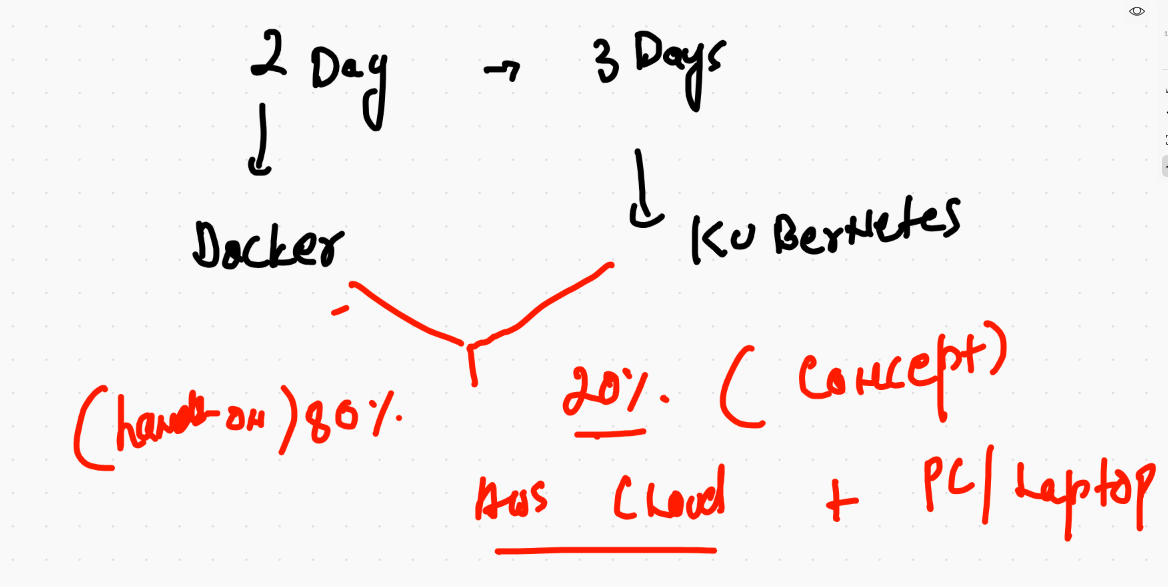 2 Day → 3 Days
Docker KUBerNetes
(hands-on) 80% 20% (Concept)
Aws Cloud + PC/Laptop